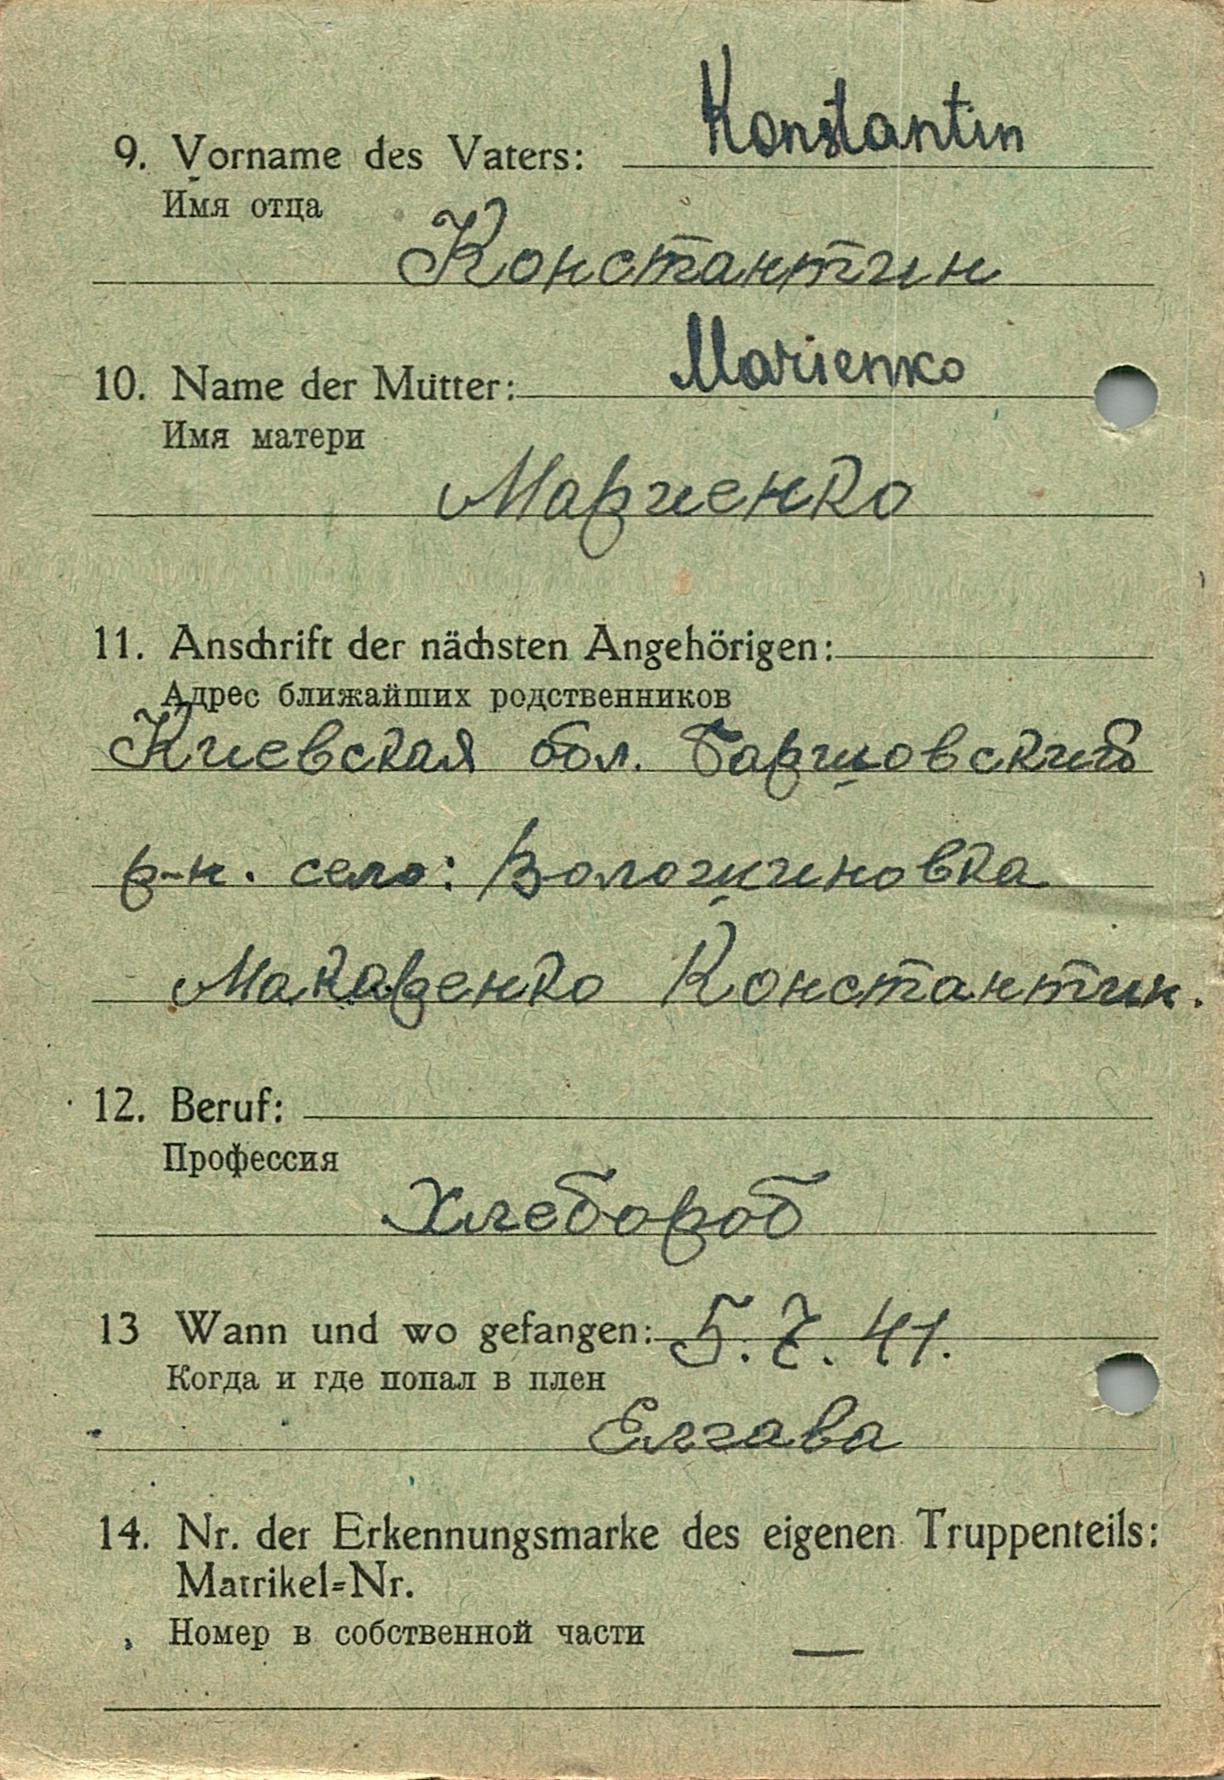 9. Vorname des Vaters: Konstantin
Имя отца
Константин
10. Name der Mutter: Marienko
Имя матери
Мариенко
11. Anschrift der nächsten Angehörigen:
Адрес ближайших родственников
Киевская обл. Баришовский
р-н. село: Волошиновка
Макаренко Константин.
12. Beruf:
Профессия
Хлебороб
13 Wann und wo gefangen: 5.7.41.
Когда и где попал в плен
Елгава
14. Nr. der Erkennungsmarke des eigenen Truppenteils:
Matrikel=Nr.
Номер в собственной части —